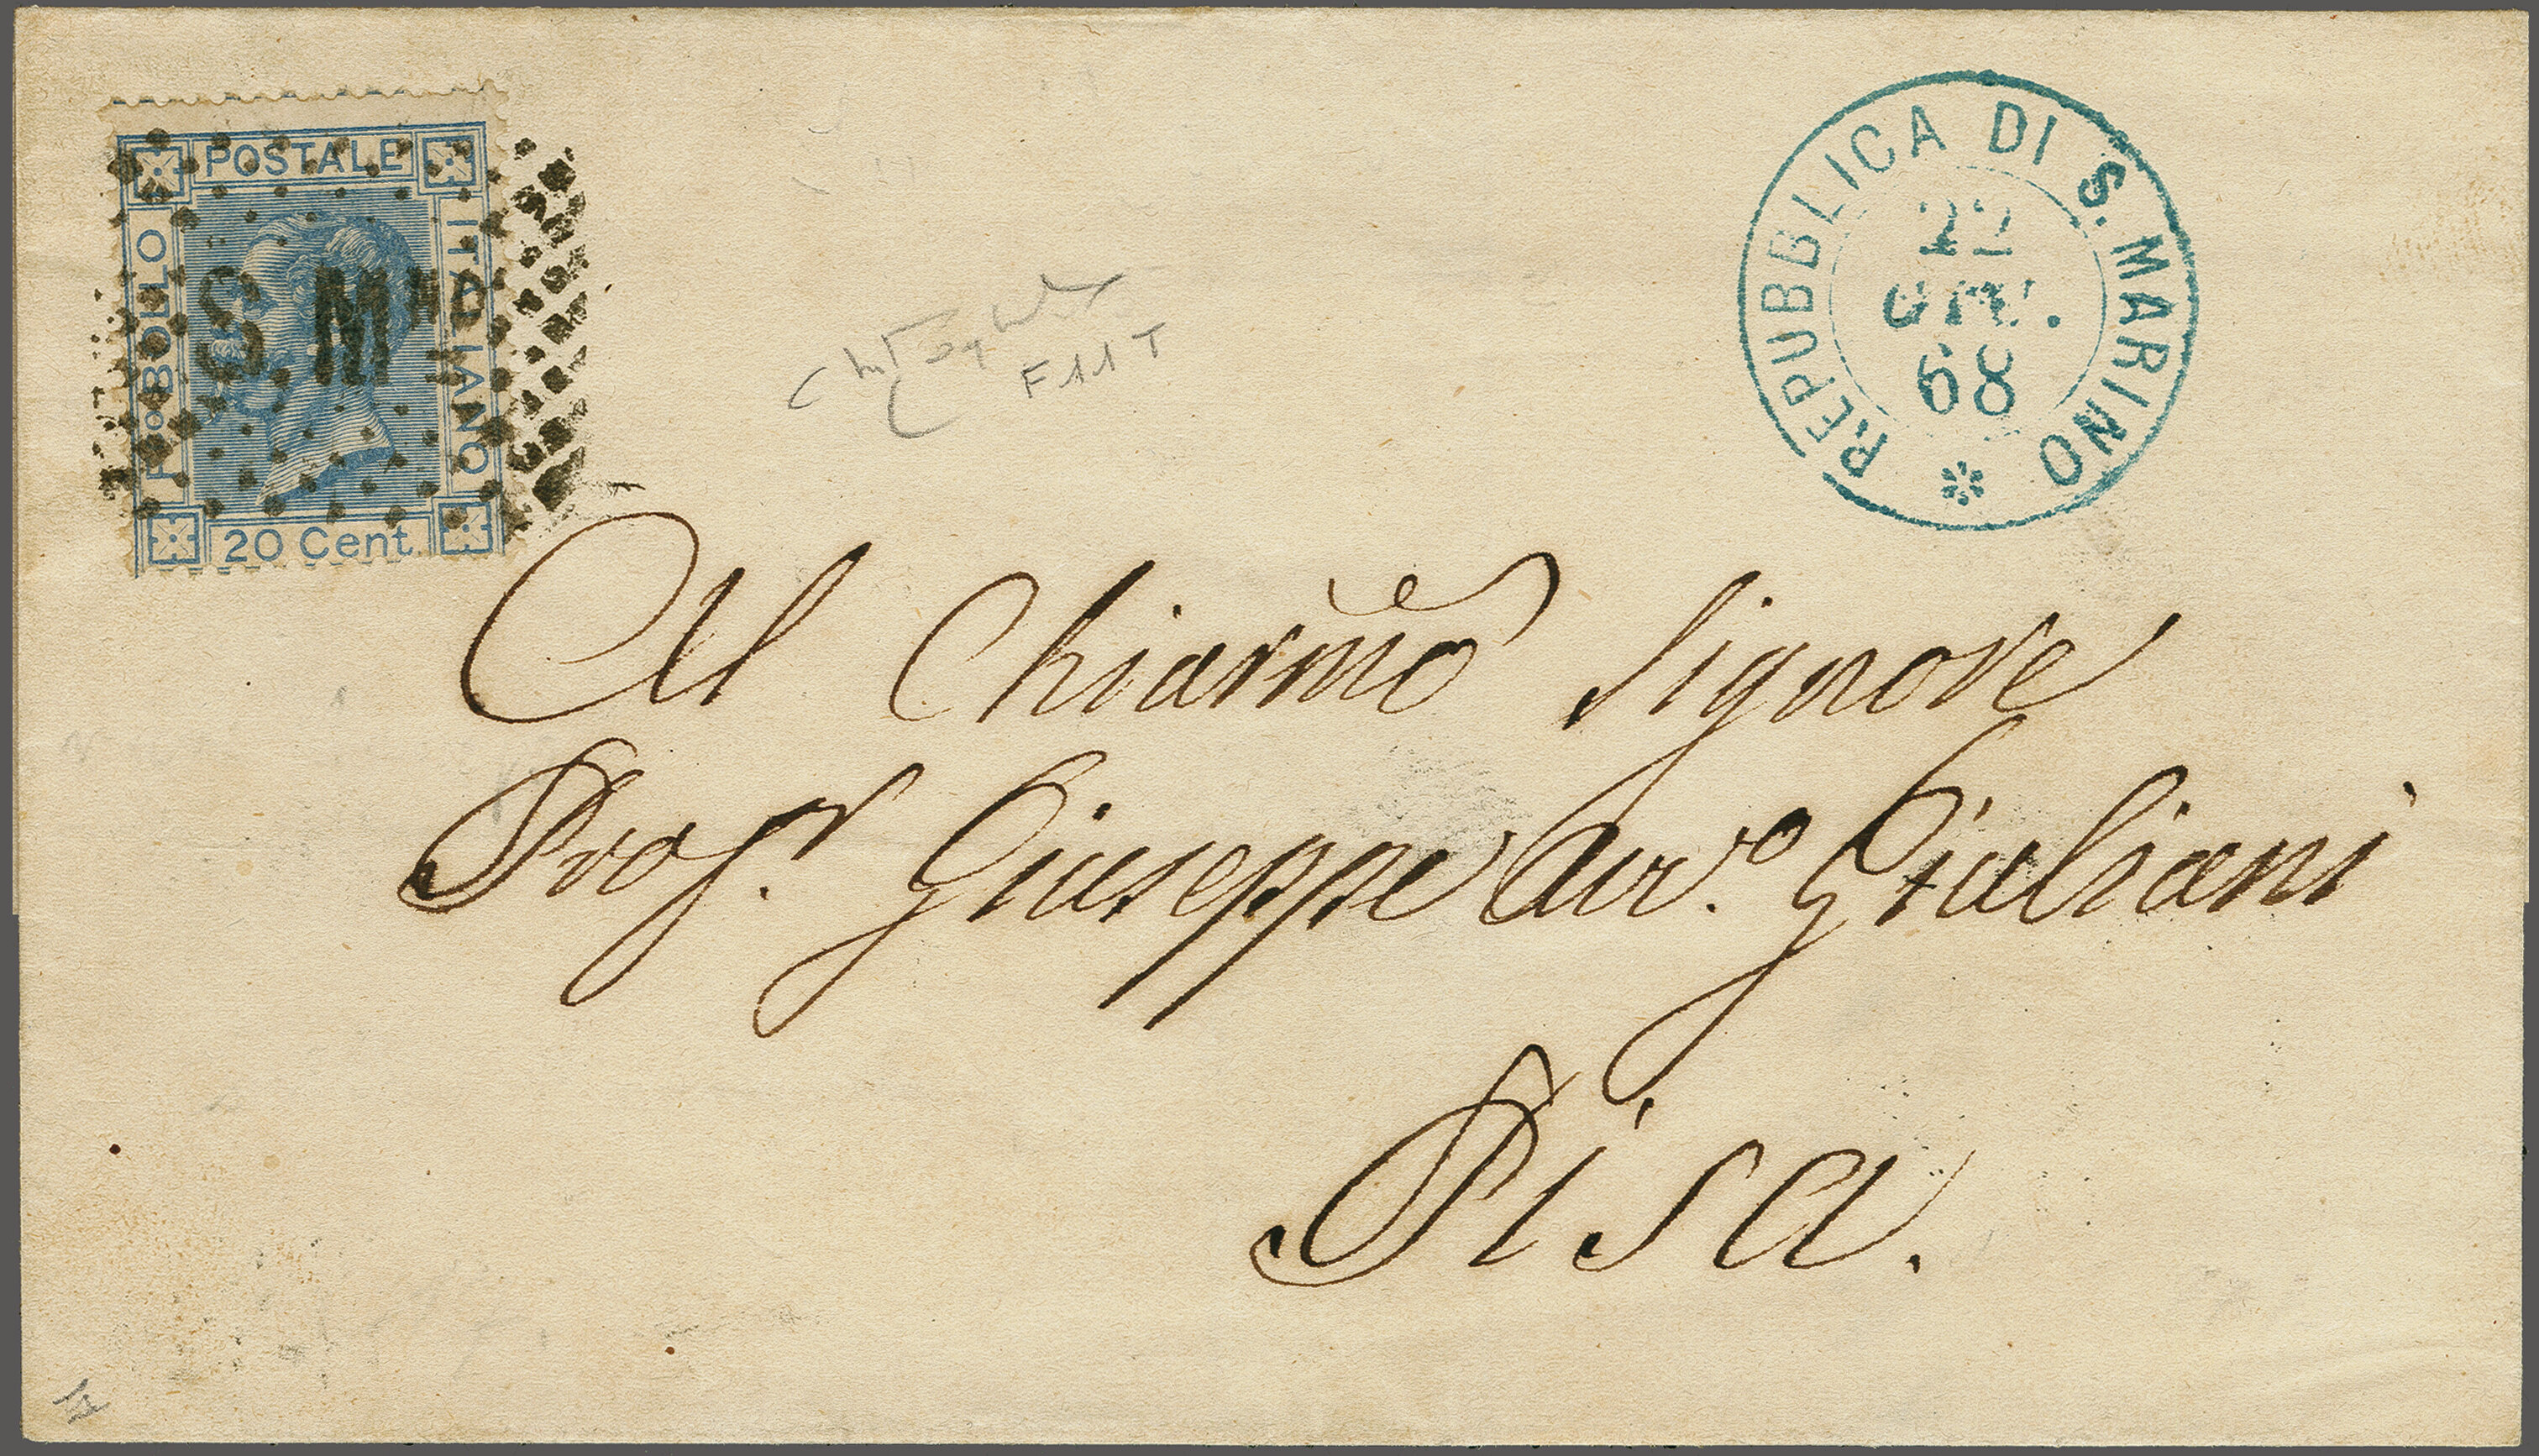 POSTALE
Fco BOLLO
ITALIANO
20 Cent.
S Mno
REPUBBLICA DI S. MARINO
22
GIU.
68
F 11 T
Al Chiarmo Signore
Profr. Giuseppe Avvo. Giuliani
Pisa.